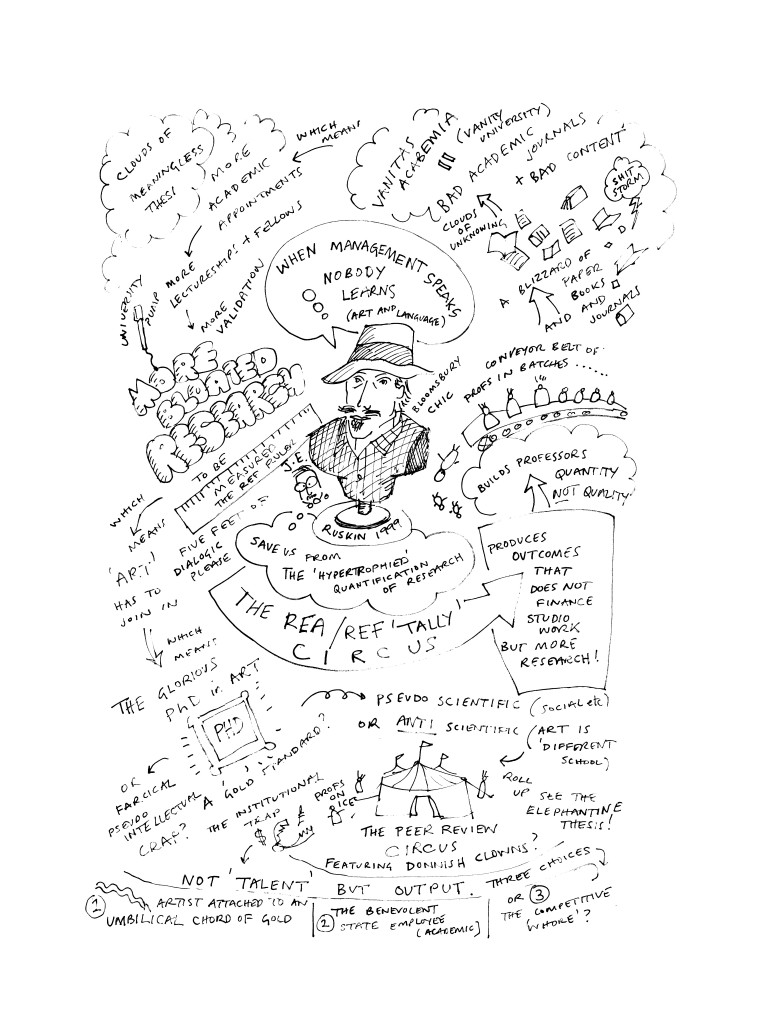 CLOUDS OF
MEANINGLESS
THESI
MORE
ACADEMIC
APPOINTMENTS
WHICH
MEANS
VANITAS
ACADEMIA
(VANITY
UNIVERSITY)
BAD ACADEMIC
JOURNALS
+ BAD CONTENT
SHIT
STORM
CLOUDS
OF
UNKNOWING
A BLIZZARD OF
PAPER
BOOKS
AND AND
JOURNALS
UNIVERSITY
PUMP
MORE
LECTURESHIPS + FELLOWS
MORE
VALIDATION
WHEN MANAGEMENT SPEAKS
NOBODY
LEARNS
(ART AND LANGUAGE)
MORE
BLOATED
RESEARCH
BLOOMSBURY
CHIC
CONVEYOR BELT OF
PROFS IN BATCHES ......
BUILDS PROFESSORS
QUANTITY
NOT QUALITY
TO BE
MEASURED
THE REF RULER
J.E.
FIVE FEET OF
DIALOGIC
PLEASE
RUSKIN 1999
SAVE US FROM
THE 'HYPERTROPHIED'
QUANTIFICATION
OF RESEARCH
THE REA/REF 'TALLY'
CIRCUS
PRODUCES
OUTCOMES
THAT
DOES NOT
FINANCE
STUDIO
WORK
BUT MORE
RESEARCH!
WHICH
MEANS
'ART'
HAS TO
JOIN IN
WHICH
MEANS
THE GLORIOUS
PhD in ART
PHD
A 'GOLD STANDARD'?
OR
FARCICAL
PSEUDO
INTELLECTUAL
CRAP?
PSEUDO SCIENTIFIC (SOCIAL etc)
OR ANTI SCIENTIFIC
(ART IS
'DIFFERENT
SCHOOL)
ROLL
UP
SEE THE
ELEPHANTINE
THESIS!
THE INSTITUTIONAL
TRAP
$
£
PROFS
ON
ICE
THE PEER REVIEW
CIRCUS
FEATURING DONNISH CLOWNS?
NOT 'TALENT' BUT OUTPUT. THREE CHOICES
1 ARTIST ATTACHED TO AN
UMBILICAL CHORD OF GOLD
2 THE BENEVOLENT
STATE EMPLOYEE
(ACADEMIC)
OR 3
THE COMPETITIVE
'WHORE'?